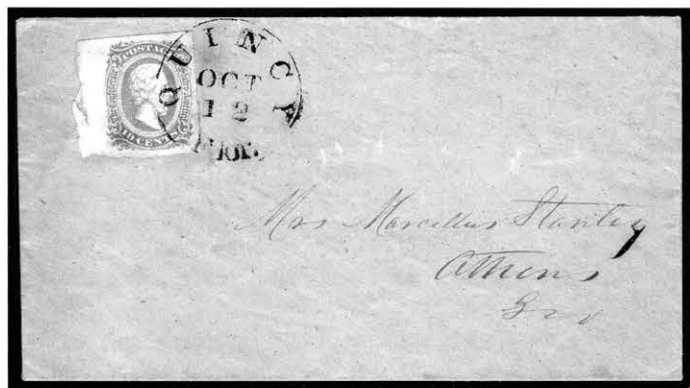 POSTAGE
10 CENTS
QUINCY
OCT
12
Mrs Marcellus Stanley
Athens